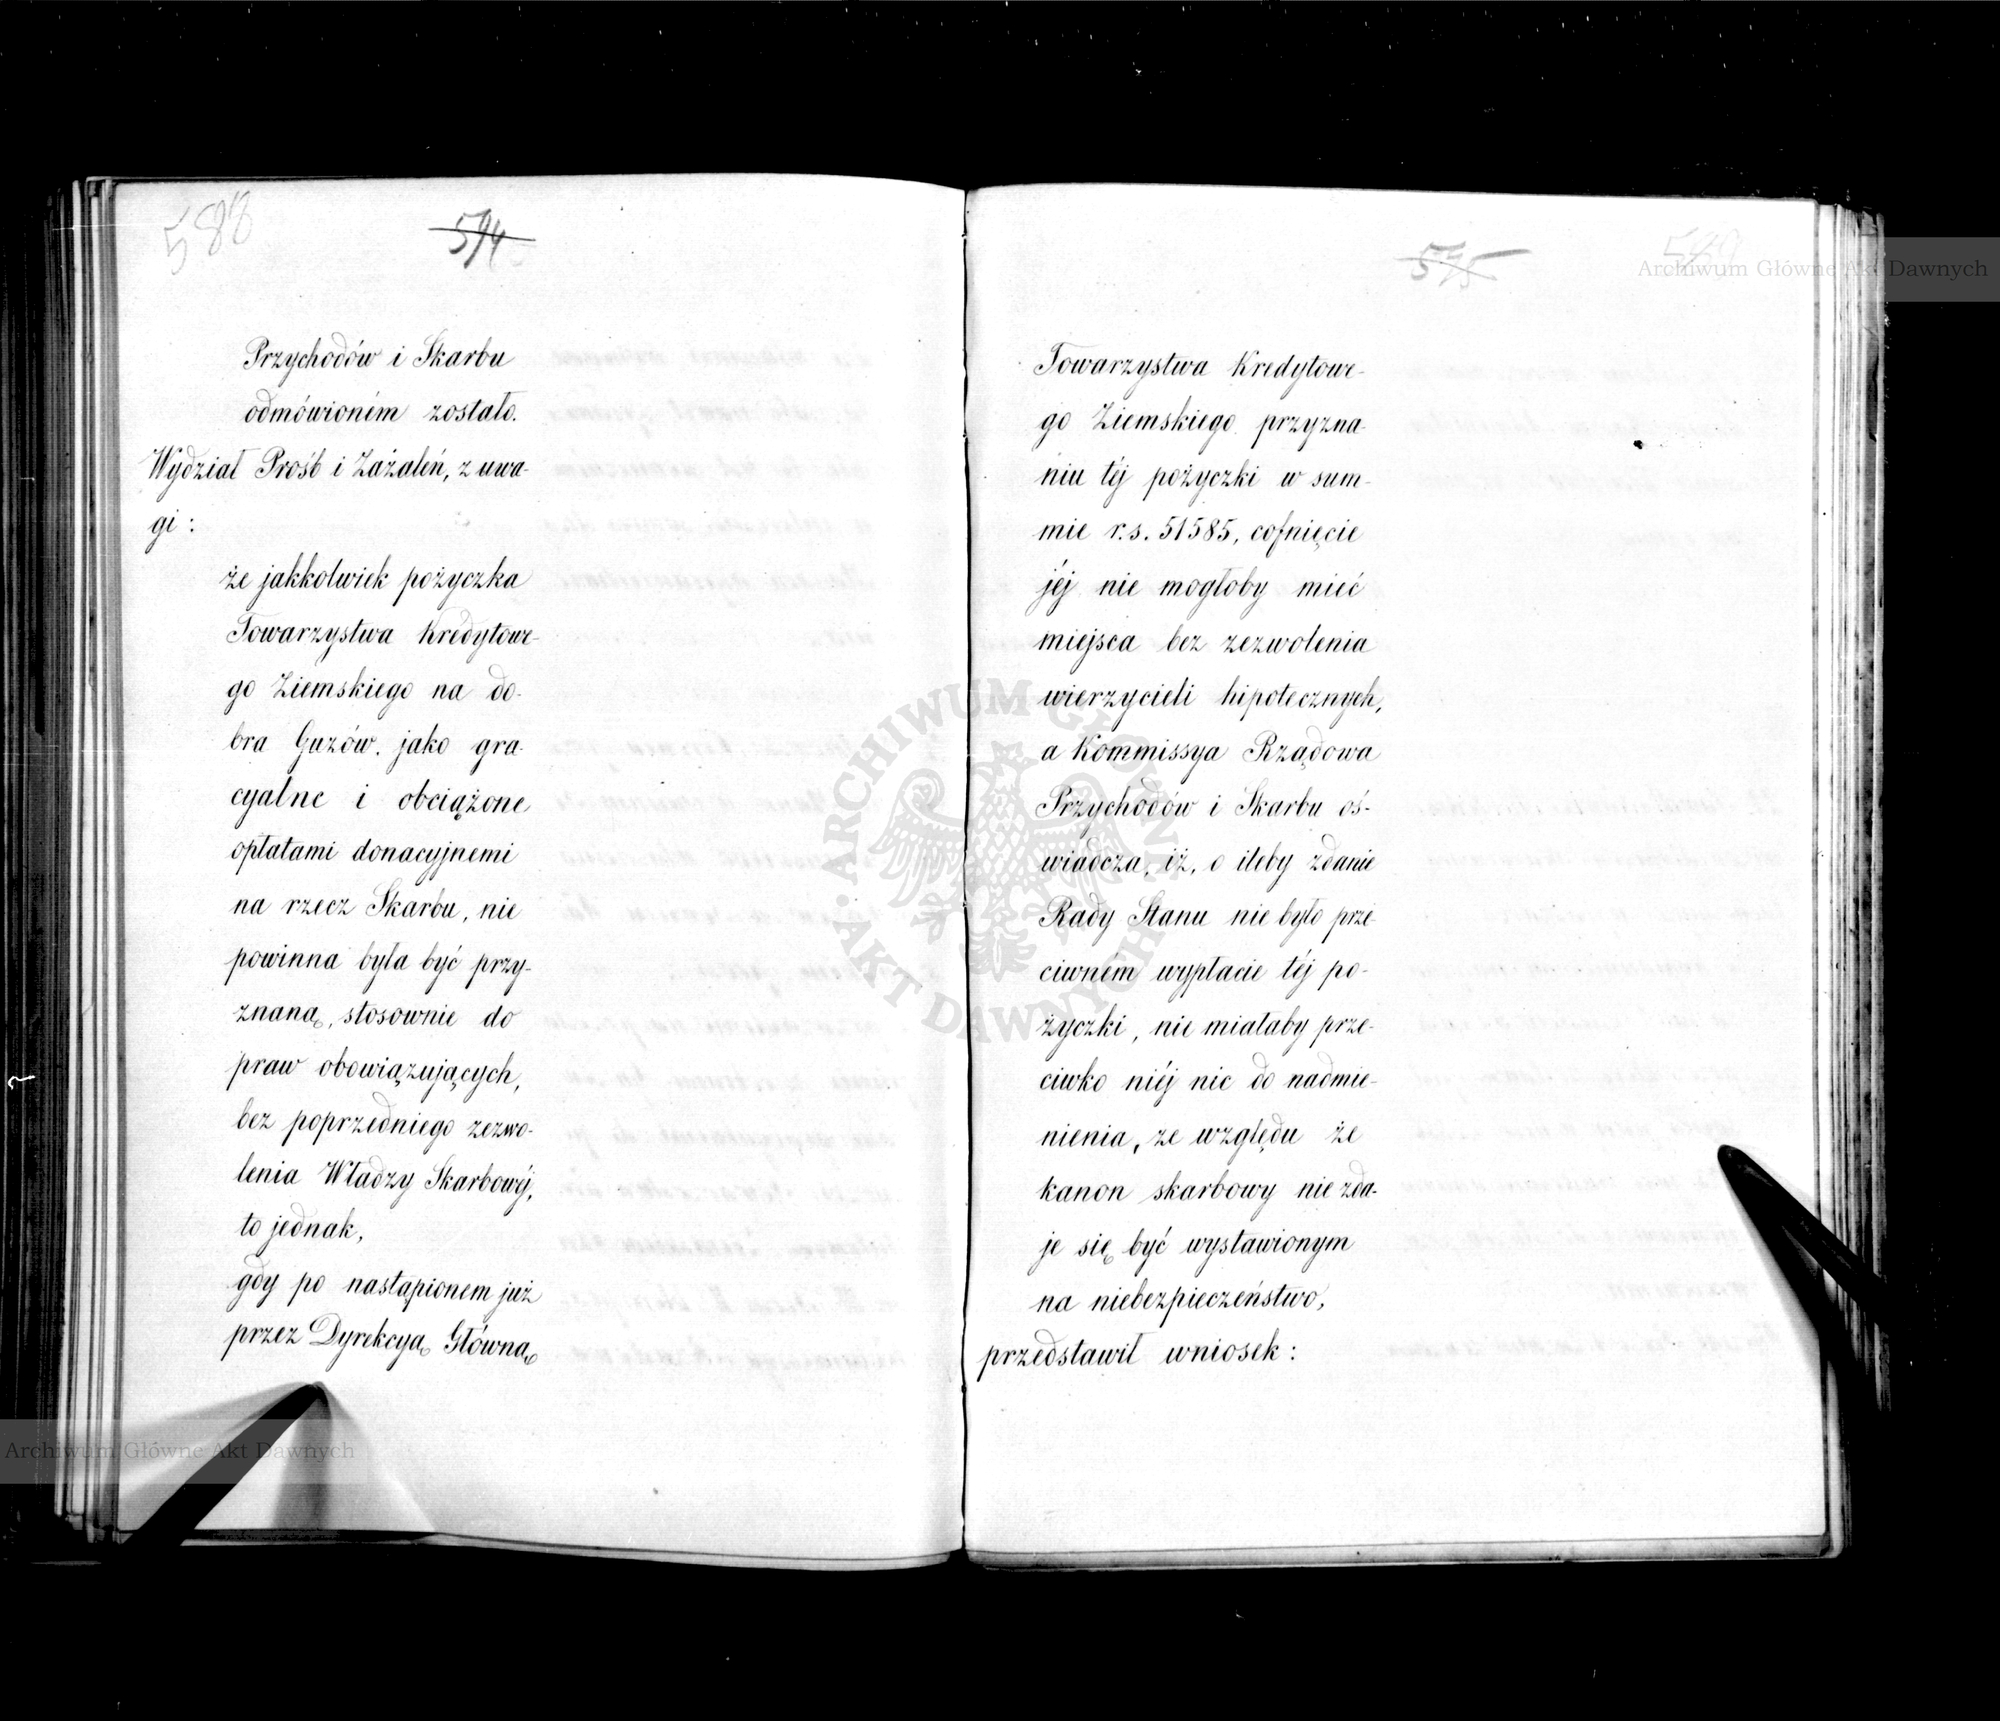 588
594
Przychodów i Skarbu
odmówioném zostało.
Wydział Prośb i Zażaleń, z uwa-
gi:
że jakkolwiek pożyczka
Towarzystwa Kredytowe-
go Ziemskiego na do-
bra Guzów. jako gra-
cyalne i obciążone
opłatami donacyjnemi
na rzecz Skarbu, nie
powinna była być przy-
znaną, stosownie do
praw obowiązujących,
bez poprzedniego zezwo-
lenia Władzy Skarbowéj,
to jednak,
gdy po nastąpionem już
przez Dyrekcyą Główną
595
589
Towarzystwa Kredytowe-
go Ziemskiego przyzna-
niu téj pożyczki w sum-
mie r.s. 51585, cofnięcie
jéj nie mogłoby mieć
miejsca bez zezwolenia
wierzycieli hipotecznych,
a Kommissya Rządowa
Przychodów i Skarbu oś-
wiadcza, iż, o ileby zdanie
Rady Stanu nie było prze-
ciwném wypłacie téj po-
życzki, nie miałaby prze-
ciwko niéj nic do nadmie-
nienia, ze względu że
kanon skarbowy nie zda-
je się być wystawionym
na niebezpieczeństwo,
przedstawił wniosek:
Archiwum Główne Akt Dawnych
ARCHIWUM GŁÓWNE AKT DAWNYCH
Archiwum Główne Akt Dawnych